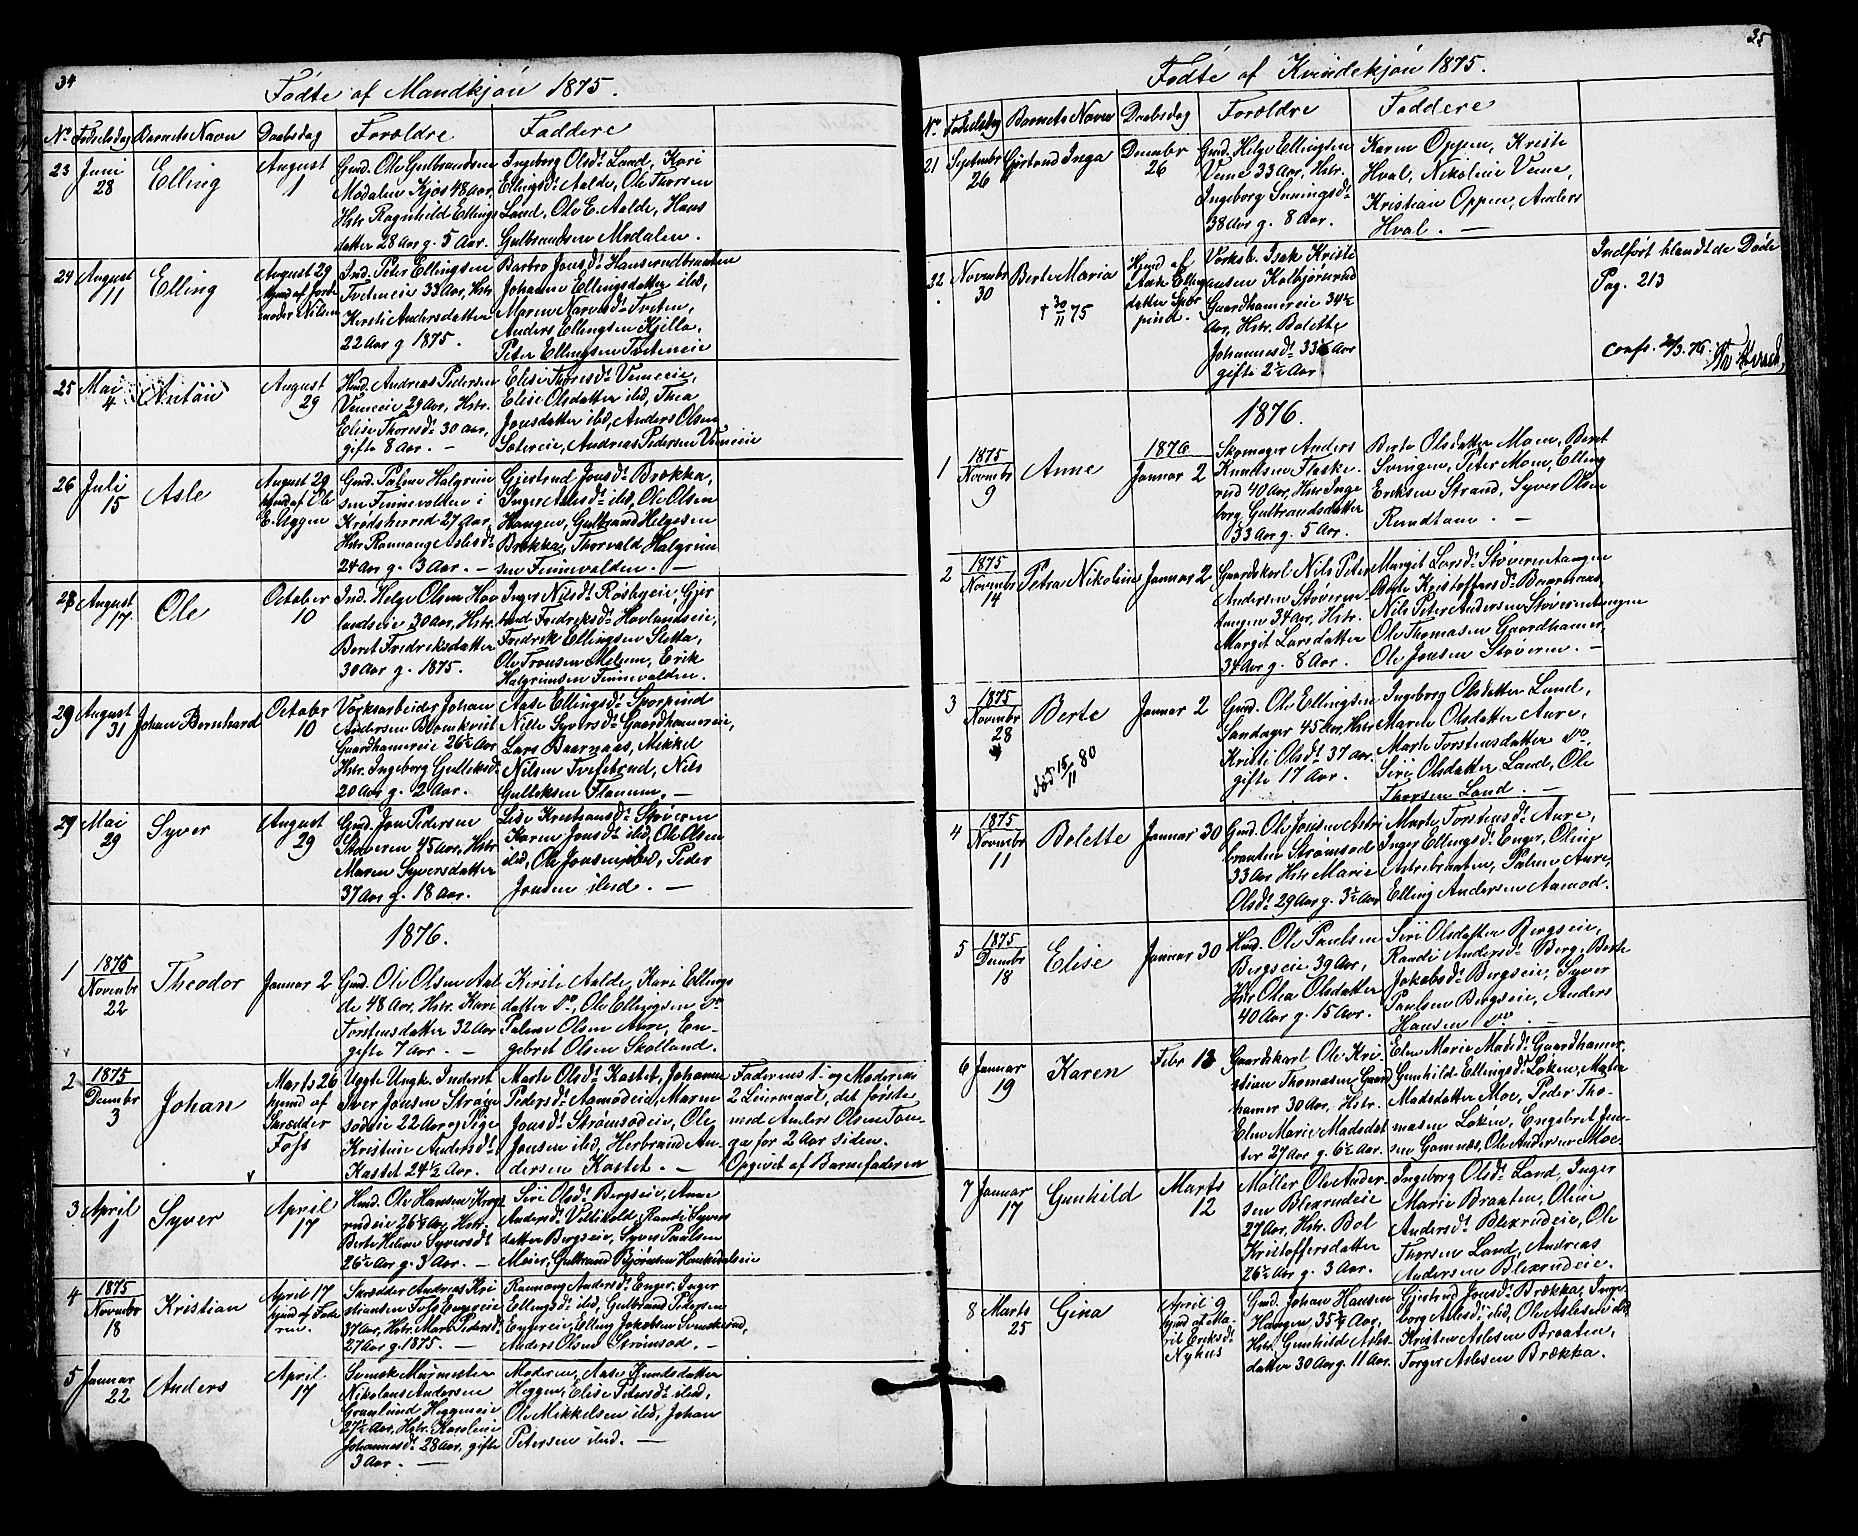 34
Fødte af Mandkjøn 1875.
No Fødselsdag Barnets Navn Daabsdag Forældre Faddere
23 Juni 28 Elling August 1
Gmd. Ole Gulbrandsen
Modalen Kjøs 48 Aar,
Hstr. Ragnhild Ellings
datter 28 Aar g. 5 Aar.
Ingeborg Olsdr. Land, Kari
Ellingsdr. Aalde, Ole Thorsen
Land, Ole E. Aalde, Hans
Gulbrandsen Modalen.
24 August 11 Elling August 29
hjmd af Jorde
moder Nilsen
Ind. Peter Ellingsen
Tveteneie 33 Aar, Hstr.
Kersti Andersdatter
22 Aar g 1875.
Barbro Jonsdr. Hanserudbraaten
Johanne Ellingsdatter ibd,
Maren Narvesdr. Tveten,
Anders Ellingsen Kjella,
Peter Ellingsen Tveteneie
25 Mai 4 Anton August 29
Hmd. Andreas Pedersen
Vemeeie 29 Aar, Hstr.
Elise Thoresdr. 30 Aar,
gifte 8 Aar. —
Elise Thoresdr. Vemeeie,
Elise Olsdatter ibd, Thea
Jonsdatter ibd, Anders Olsen
Sætereie, Andreas Pedersen Vemeeie
26 Juli 15 Asle August 29
hjmd af Ole
E. Uggen
Gmd. Palme Halgrim
sen Finnevolden i
Krødsherred 27 Aar,
Hstr. Rannaug Aslesdr.
24 Aar g. 3 Aar. —
Gjertrud Jonsdr. Brækka,
Inger Aslesdr. ibd, Ole Olsen
Haugen, Gulbrand Helgesen
Brækka, Thorvald Halgrim
sen Finnevolden. —
28 August 17 Ole October 10
Ind. Helge Olsen Hov
landseie 30 Aar, Hstr.
Beret Fredriksdatter
30 Aar g. 1875.
Inger Nilsdr. Rosbyeie, Gjer
trud Fredriksdr. Hovlandseie,
Fredrik Ellingsen Sletta,
Ole Tronsen Melum, Erik
Halgrimsen Finnevolden.
29 August 31 Johan Bernhard October 10
Værkarbeider Johan
Andersen Blomkvist
Gaardhamereie 26½ Aar
Hstr. Ingeborg Gulliksdr.
20 Aar g. 2 Aar.
Aase Ellingsdr. Sporpind
Nille Syversdr. Gaardhamereie,
Lars Baarnaas, Mikkel
Nilsen Tvifetrud, Nils
Gulliksen Flannum. —
27 Mai 29 Syver August 29
Gmd. Jon Pedersen
Støveren 45 Aar, Hstr
Maren Syversdatter
37 Aar g. 18 Aar.
Lise Kristiansdr. Støveren
Karen Jonsdr. ibd, Ole Olsen
ibd, Ole Jonsen ibd, Peder
Jonsen ibid. —
1876.
1 1875 Novembr 22 Theodor Januar 2
Gmd. Ole Olsen Aal
de 48 Aar, Hstr. Kari
Torstensdatter 32 Aar
gifte 7 Aar. —
Kersti Aalde, Kari Ellings
datter do, Ole Ellingsen do
Palme Olsen Aure, En-
gebret Olsen Skolland.
2 1875 Decembr 3 Johan Marts 26
hjmd af
Skrædder
Foss
Uægte Ungk. Inderst
Iver Jonsen Strøm
sodeie 22 Aar og Pige
Kristine Andersdr.
Kastet 24½ Aar.
Marte Olsdr. Kastet, Johanne
Pedersdr. Aamodeie, Maren
Jonsdr. Strømsodeie, Ole
Jonsen ibd, Herbrand An-
dersen Kastet. —
Faderens 1. og Moderens
2 Leiermaal, det første
med Anders Olsen Tan-
ga for 2 Aar siden.
Opgivet af Barnefaderen
3 April 1 Syver April 17
Hmd. Ole Hansen Kroge
rudeie 26½ Aar, Hstr.
Berte Helene Syversdr.
26½ Aar g. 3 Aar. —
Siri Olsdr. Bergseie, Anne
Andersdr. Vellikold, Randi Syvers
datter Bergseie, Syver Paulsen
Moeie, Gulbrand Bjørnsen
4 1875 Novembr 18 Kristian April 17
hjmd af Fade
ren.
Skrædder Andreas Kri
stiansen Foss Engereie
37 Aar, Hstr. Mari Pedersdr.
27 Aar g. 1875. —
Rannaug Andersdr. Enger, Inger
Ellingsdr. ibd, Gulbrand Pedersen
Engereie, Elling Jakobsen Svenskerud,
Anders Olsen Strømsod. —
5 Januar 22 Anders April 17
Svensk Murmester
Nikolaus Andersen
Granlund Heggeneie
27½ Aar, Hstr. Karoline
Johannesdr. 28 Aar, gifte
3 Aar. —
Moderen, Aase Knudsdatter
Heggen, Elise Petersdr. ibd,
Ole Mikkelsen ibd, Johan
Petersen ibd. —
35
Fødte af Kvindekjøn 1875.
No Fødselsdag Barnets Navn Daabsdag Forældre Faddere
21 Septembr 26 Gjertrud Inga Decembr 26
Gmd. Helge Ellingsen
Veme 33 Aar, Hstr.
Ingeborg Sveningsdr.
38 Aar g. 8 Aar.
Karen Oppen, Kristi
Hval, Nikoline Veme,
Kristian Oppen, Anders
Hval. —
22 Novembr 30 Berte Maria
† 30/11 75
Hjmd af
Aase Ellings
datter Spor
pind.
Værksb. Isak Kristi
ansen Kolbjørnrud
Gaardhamereie 34½
Aar, Hstr. Bolette
Johannesdr. 33½ Aar
gifte 2½ Aar
Indført blandt de Døde
Pag. 213
Confr. 2/3. 76.
1876.
1 1875 Novembr 9 Anne 1876 Januar 2
Skomager Anders
Knudsen Flaske-
rud 40 Aar, Hstr Inge
borg Gulbrandsdatter
33 Aar g. 5 Aar.
Berte Olsdatter Moen, Beret
Svingen, Peter Moen, Elling
Eriksen Strand, Syver Olsen
Rundtom. —
2 1875 Novembr 14 Petra Nikoline Januar 2
Gaardskarl Nils Peter
Andersen Støveren-
tangen 34 Aar, Hstr.
Margit Larsdatter
34 Aar g. 8 Aar.
Margit Larsdr. Støverentangen
Berte Kristoffersdr. Baarnaas,
Nils Peter Andersen Støverentangen
Ole Thomasen Gaardhamer,
Ole Jonsen Støveren. —
3 1875 Novembr 28 Berte Januar 2
død 15/11 80
Gmd. Ole Ellingsen
Sandager 45 Aar, Hstr
Kristi Olsdr. 37 Aar
gifte 17 Aar.
Ingeborg Olsdatter Land,
Maren Olsdatter Aure,
Marte Torstensdatter do,
Siri Olsdatter Land, Ole
Thorsen Land. —
4 1875 Novembr 11 Bolette Januar 30
Gmd. Ole Jonsen Askri
braaten Strømsod
33 Aar Hstr Marie
Olsdr. 29 Aar g. 3½ Aar
Marte Torstensdr. Aure,
Inger Ellingsdr. Enger, Oline
Askribraaten, Palme Aure,
Elling Andersen Aamod.
5 1875 Decembr 18 Elise Januar 30
Hmd. Ole Paulsen
Bergseie 39 Aar,
Hstr Olea Olsdatter
40 Aar g. 15 Aar.
Siri Olsdatter Bergseie,
Randi Andersdr. Berg, Berte
Jakobsdr. Bergseie, Syver
Paulsen Bergseie, Anders
Hansen do. —
6 Januar 19 Karen Febr 13
Gaardskarl Ole Kri
stian Thomasen Gaard
hamer 30 Aar, Hstr.
Elen Marie Madsdat
ter 27 Aar g. 6½ Aar.
Elen Marie Madsdr. Gaardhamer,
Gunhild Ellingsdr. Løken, Maria
Madsdatter Moe, Peder Tho-
masen Løken, Engebret Jen-
sen Gamnæs, Ole Andersen Moe
7 Januar 17 Gunhild Marts 12
Møller Ole Ander-
sen Blexrudeie
27 Aar, Hstr. Bol
Kristoffersdatter
26½ Aar g. 3 Aar.
Ingeborg Olsdr. Land, Inger
Marie Braaten, Oline
Andersdr. Blexrudeie, Ole
Thorsen Land, Andreas
Andersen Blexrudeie.
8 Marts 25 Gina April 9
hjmd af Ma-
rit Eriksdr.
Nyhus
Gmd. Johan Hansen
Haugen 35¾ Aar,
Hstr Gunhild Asles-
datter 30 Aar g. 11 Aar.
Gjertrud Jonsdr. Brækka, Inge-
borg Aslesdr. ibd, Ole Aslesen ibd,
Kristen Aslesen Braaten,
Torger Aslesen Brækka.